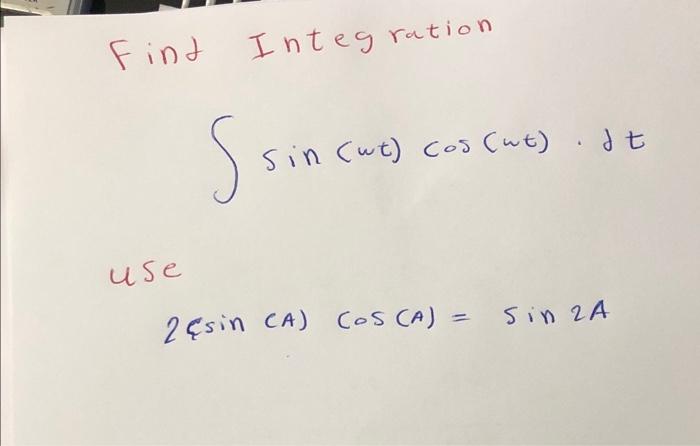 Find Integration
∫ sin (wt) cos (wt) . dt
use
2 sin (A) cos (A) = sin 2A